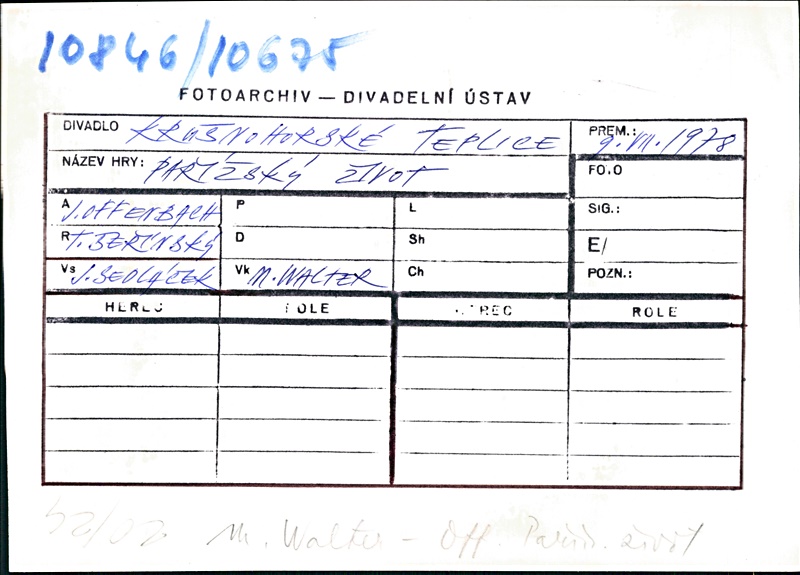 10846/10675
FOTOARCHIV — DIVADELNÍ ÚSTAV
DIVADLO KRUŠNOHORSKÉ TEPLICE PREM.: 9. VII. 1978
NÁZEV HRY: PAŘÍŽSKÝ ŽIVOT FO.O
A J. OFFENBACH P L SIG.:
R T. BEŘÍNSKÝ D Sh E/
Vs J. SEDLÁČEK Vk M. WALTER Ch POZN.:
HEREC ROLE HEREC ROLE
52/02 M. Walter - Off. Paříž. život